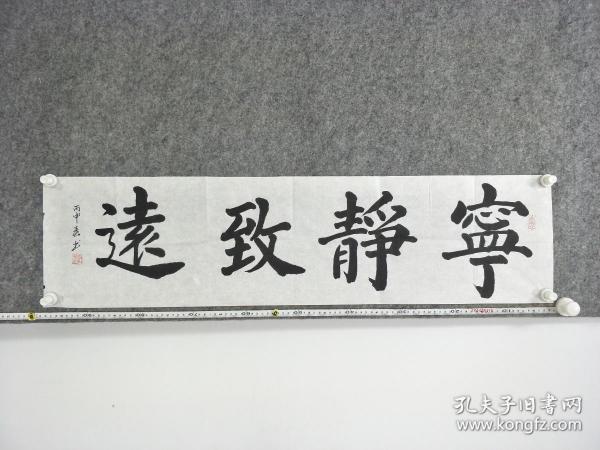 寧靜致遠
丙申春书
孔夫子旧书网
www.kongfz.com